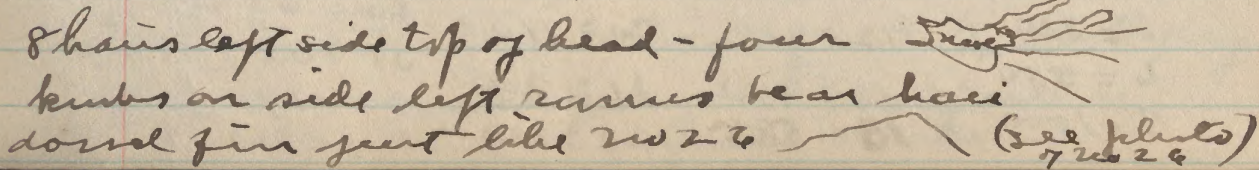 8 hairs left side top of head - four
knobs on side left ramus bear hair
dorsal fin just like no 26 (see photo)
of no 26